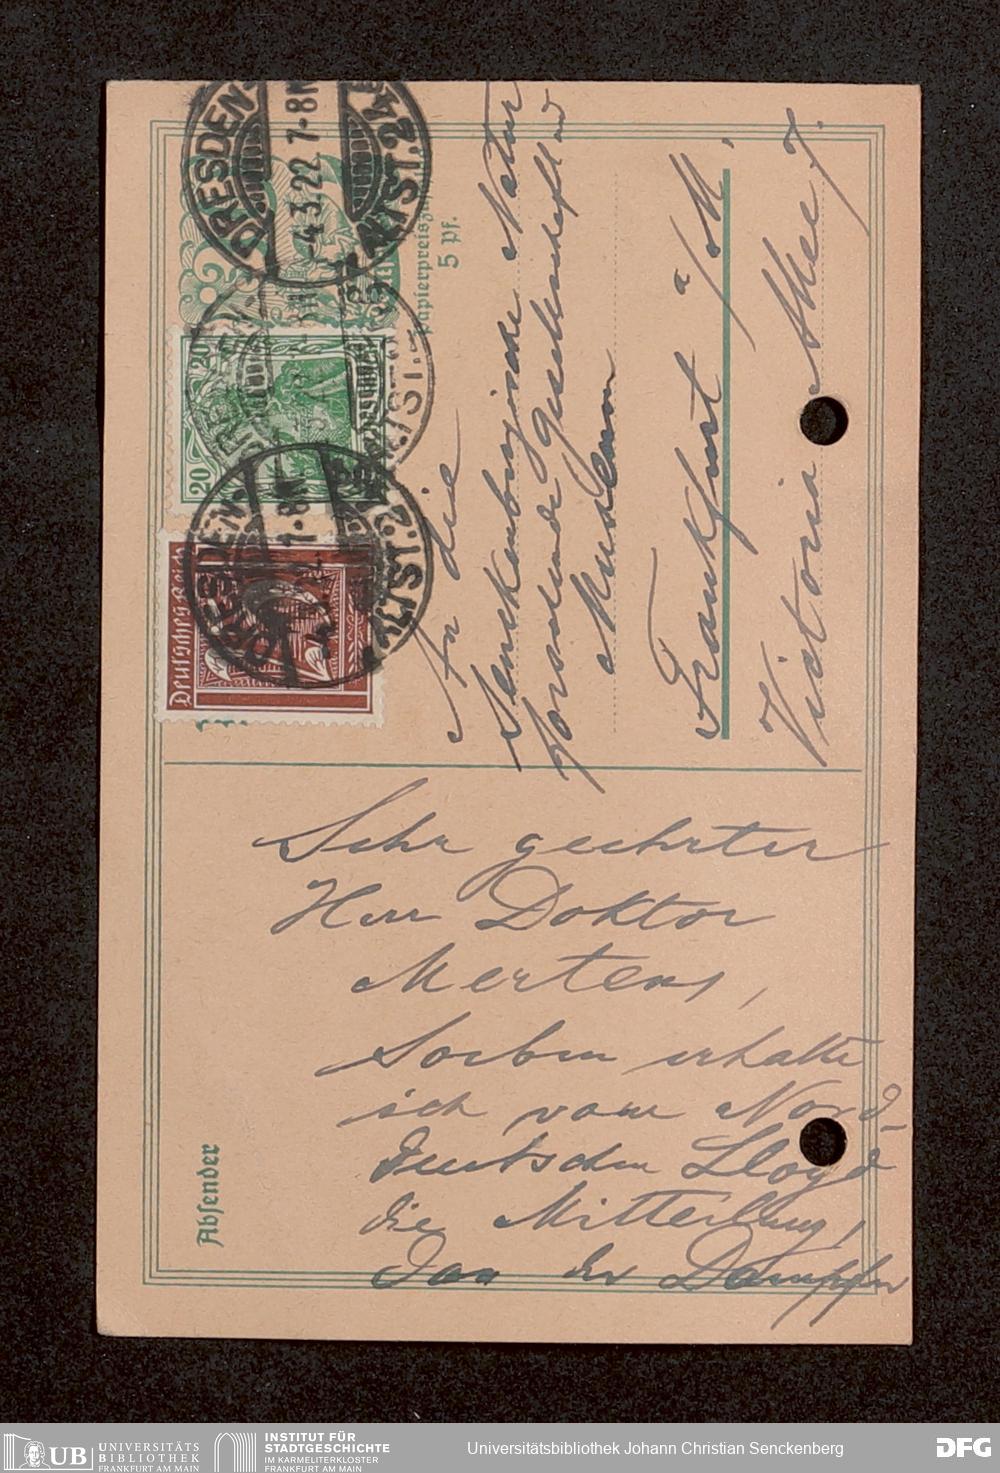 DRESDEN
-4.3.22 7-8N
Papierpreis
5 Pf.
20
20
Deutsches Reich
DRESDEN
An die
Senckenbergische Natur
forschende Gesellschaft
Museum
Frankfurt a/M.
Victoria Allee 7.
Absender
Sehr geehrter
Herr Doktor
Mertens,
Soeben erhalte
ich vom Nord-
deutschen Lloyd
die Mitteilung,
das der Dampfer
UB UNIVERSITÄTS
BIBLIOTHEK
FRANKFURT AM MAIN
INSTITUT FÜR
STADTGESCHICHTE
IM KARMELITERKLOSTER
FRANKFURT AM MAIN
Universitätsbibliothek Johann Christian Senckenberg
DFG